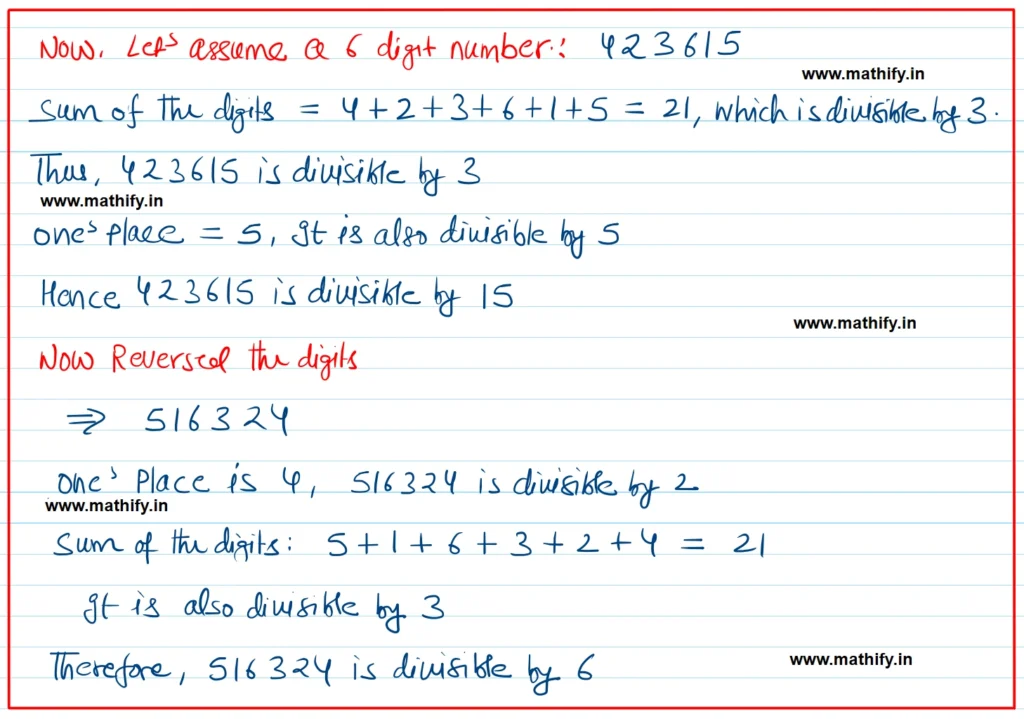 Now. Let's assume a 6 digit number: 423615
www.mathify.in
Sum of the digits = 4+2+3+6+1+5 = 21, which is divisible by 3.
Thus, 423615 is divisible by 3
www.mathify.in
one's place = 5, It is also divisible by 5
Hence 423615 is divisible by 15
www.mathify.in
Now Reversed the digits
⇒ 516324
one's Place is 4, 516324 is divisible by 2
www.mathify.in
Sum of the digits: 5+1+6+3+2+4 = 21
It is also divisible by 3
Therefore, 516324 is divisible by 6
www.mathify.in